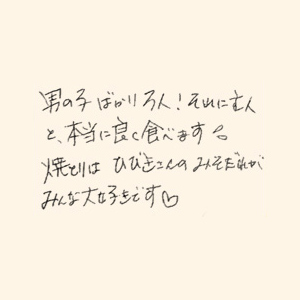 男の子ばかり3人！それに主人
と、本当に良く食べます
焼とりは ひびきさんの みそだれが
みんな大好きです♡